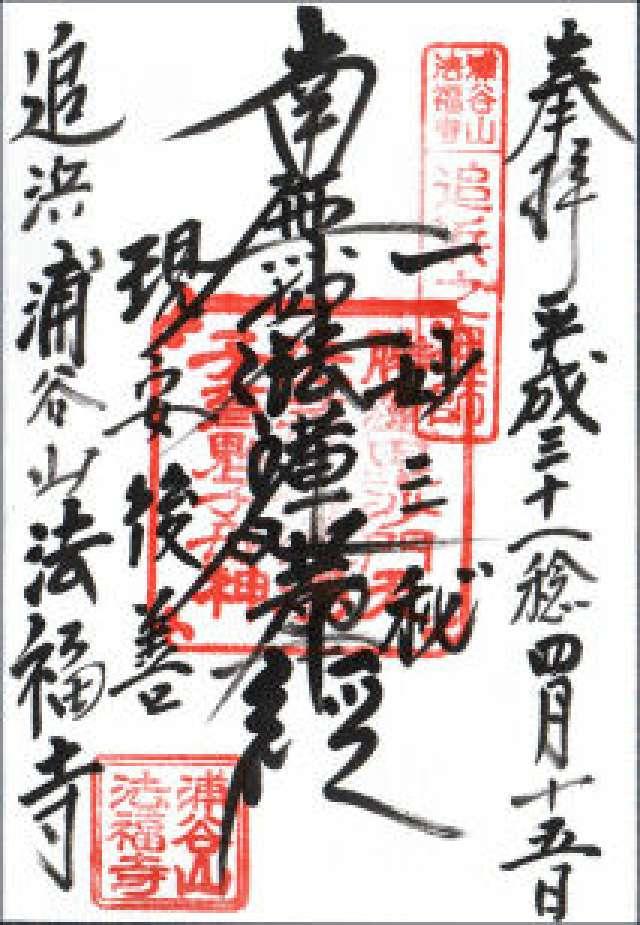 奉拝 平成三十稔四月十五日
浦谷山
法福寺
追浜之祖師
一妙三秘
南無妙法蓮華経
現安後善
追浜浦谷山法福寺
浦谷山
法福寺